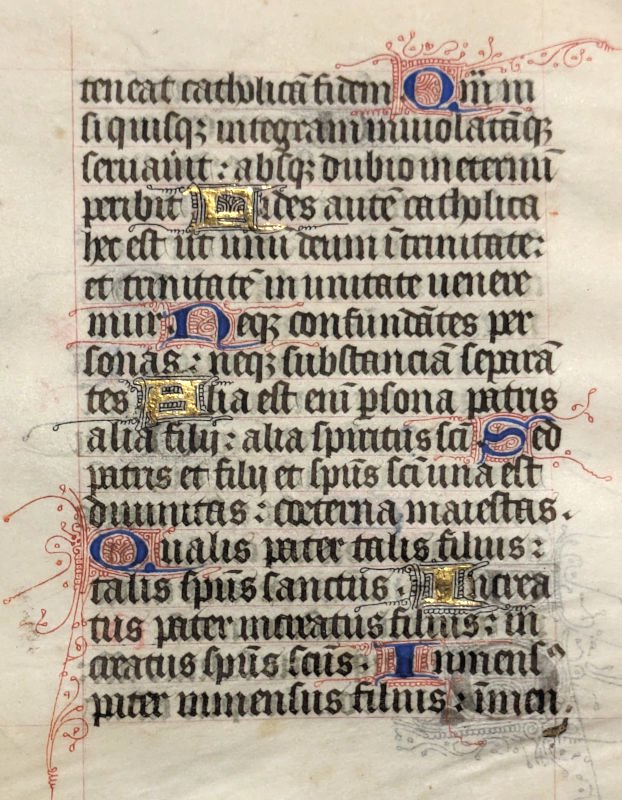 teneat catholicā fidem Quā ni
si quisqꝫ integram inuiolatāqꝫ
seruauit : absqꝫ dubio in eternū
peribit Fides autē catholica
hec est ut unū deum ī trinitate :
et trinitatē in unitate uenere
mur Neqꝫ confundātes per
sonas : neqꝫ substanciā separā
tes Alia est enī ꝑsona patris
alia filij : alia spiritus sci̅ Sed
patris et filij et spūs sci̅ una est
diuinitas : coeterna maiestas .
Qualis pater talis filius :
talis spūs sanctus . Increa
tus pater increatus filius : in̄
creatus spūs scūs : Inmensꝰ
pater inmensus filius : īmen